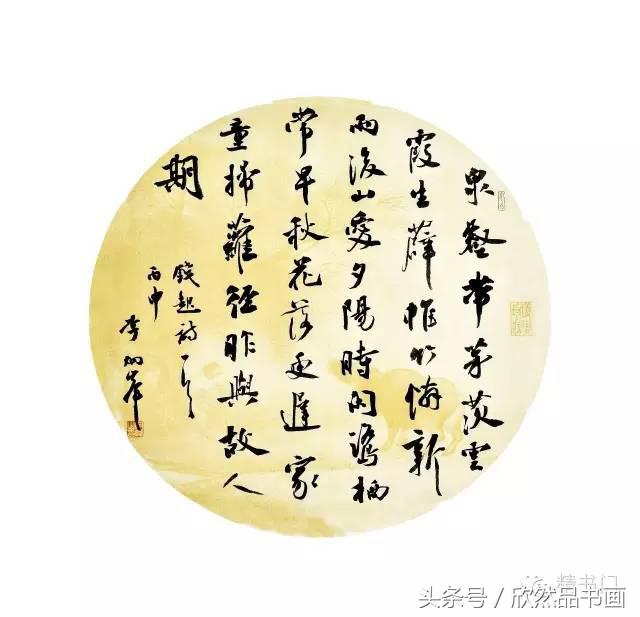 泉壑帶茅茨雲
霞生薜帷竹憐新
雨後山愛夕陽時閑鷺栖
常早秋花落更遲家
童掃蘿徑昨與故人
期
錢起詩一首
丙申 李炳
精书门
头条号 / 欣然品书画